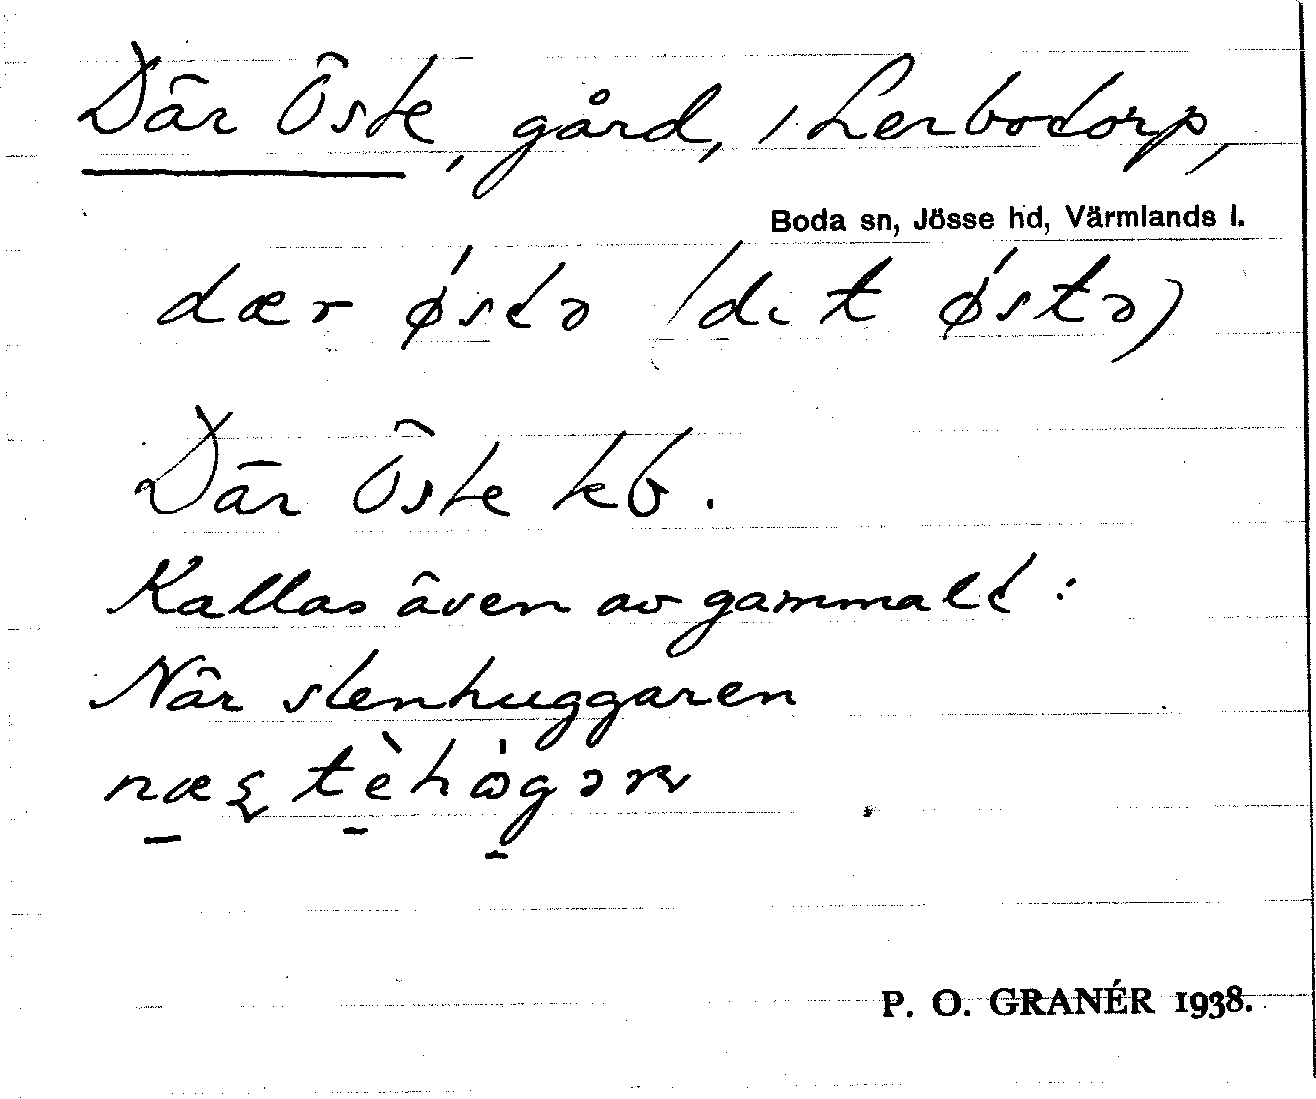 Där Öste, gård, i Lerbotorp,
Boda sn, Jösse hd, Värmlands l.
dær ǿstə (di t ǿstə)
Där Öste kb.
Kallas även av gammalt:
När stenhuggaren
P. O. GRANÉR 1938.